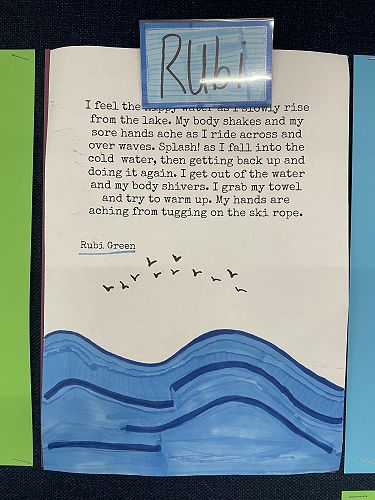 Rubi
I feel the happy water as I slowly rise
from the lake. My body shakes and my
sore hands ache as I ride across and
over waves. Splash! as I fall into the
cold water, then getting back up and
doing it again. I get out of the water
and my body shivers. I grab my towel
and try to warm up. My hands are
aching from tugging on the ski rope.
Rubi Green